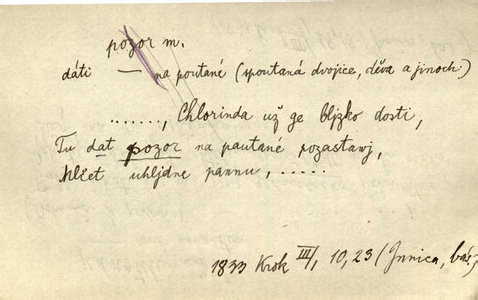 pozor m.
dáti — na poutané (spoutaná dvojice, děva a jinoch)
......, Chlorinda už ge bljzko dosti,
Tu dat pozor na pautané pozastawj,
uhljdne pannu, .....
1833 Krok III/1, 10, 23 (Jnnica, bás.)